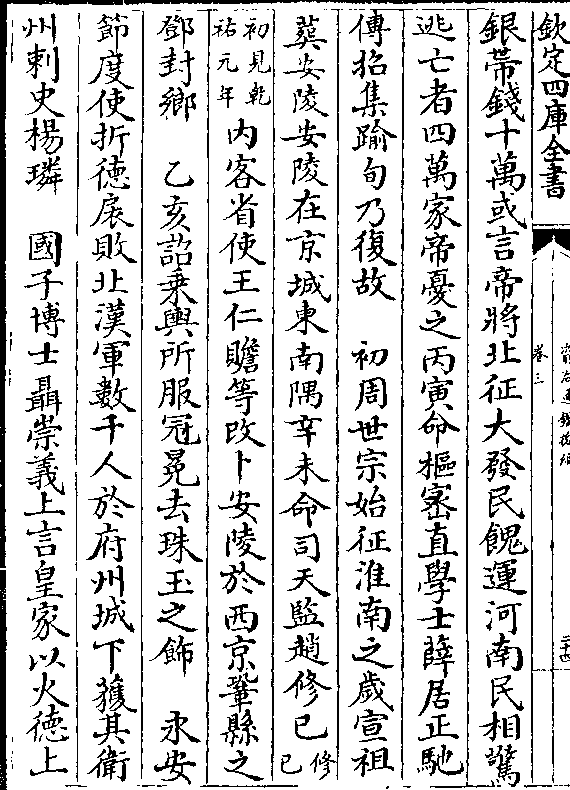 欽定四庫全書
資治通鑑後編
卷三
二十四
銀帶錢十萬或言帝將北征大發民餽運河南民相驚
逃亡者四萬家帝憂之丙寅命樞密直學士薛居正馳
傳招集踰旬乃復故　初周世宗始征淮南之歲宣祖
葬安陵安陵在京城東南隅辛未命司天監趙修已修已
初見乾祐元年内客省使王仁贍等改卜安陵於西京鞏縣之
鄧封鄉　乙亥詔乗輿所服冠冕去珠玉之飾　永安
節度使折德扆敗北漢軍數千人於府州城下獲其衛
州刺史楊璘　國子博士聶崇義上言皇家以火德上